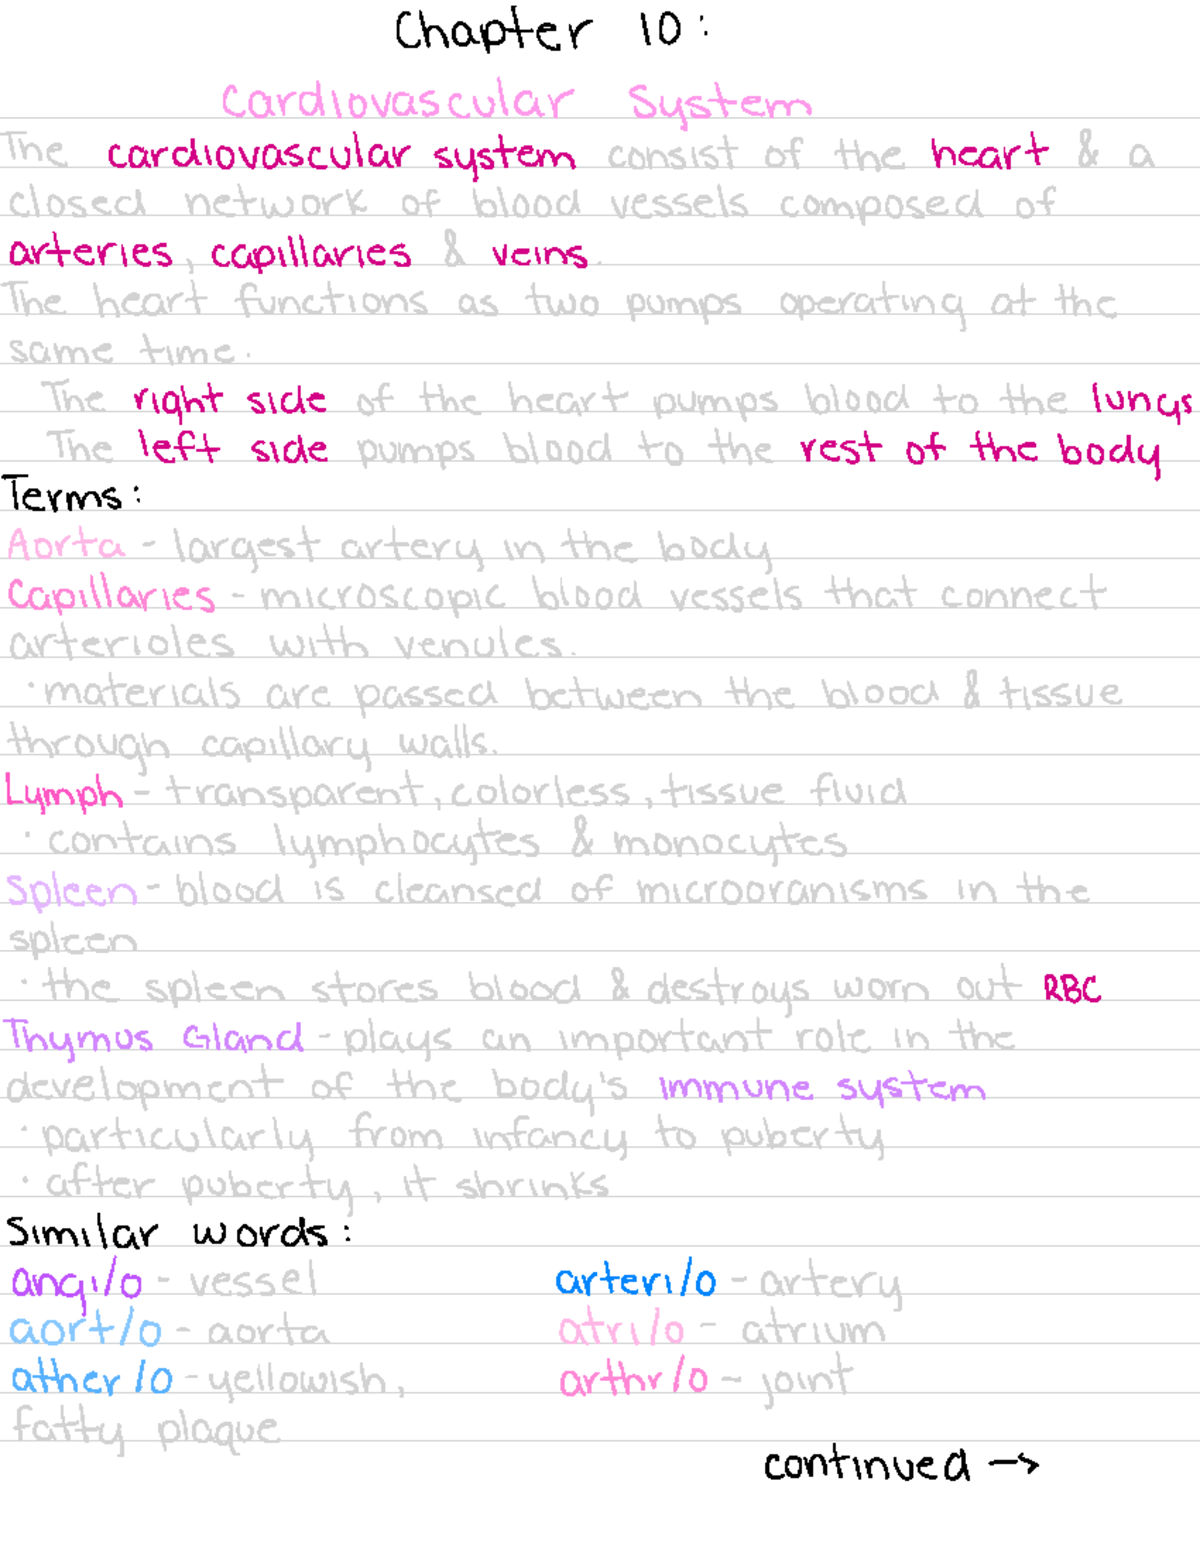 Chapter 10:
Cardiovascular System
The cardiovascular system consist of the heart & a
closed network of blood vessels composed of
arteries, capillaries & veins.
The heart functions as two pumps operating at the
same time.
The right side of the heart pumps blood to the lungs
The left side pumps blood to the rest of the body
Terms:
Aorta - largest artery in the body
Capillaries - microscopic blood vessels that connect
arterioles with venules.
· materials are passed between the blood & tissue
through capillary walls.
Lymph - transparent, colorless, tissue fluid
· contains lymphocytes & monocytes
Spleen - blood is cleansed of microoranisms in the
spleen
· the spleen stores blood & destroys worn out RBC
Thymus Gland - plays an important role in the
development of the body's immune system
· particularly from infancy to puberty
· after puberty, it shrinks
Similar words:
angi/o - vessel arteri/o - artery
aort/o - aorta atri/o - atrium
ather/o - yellowish, arthr/o - joint
fatty plaque
continued →